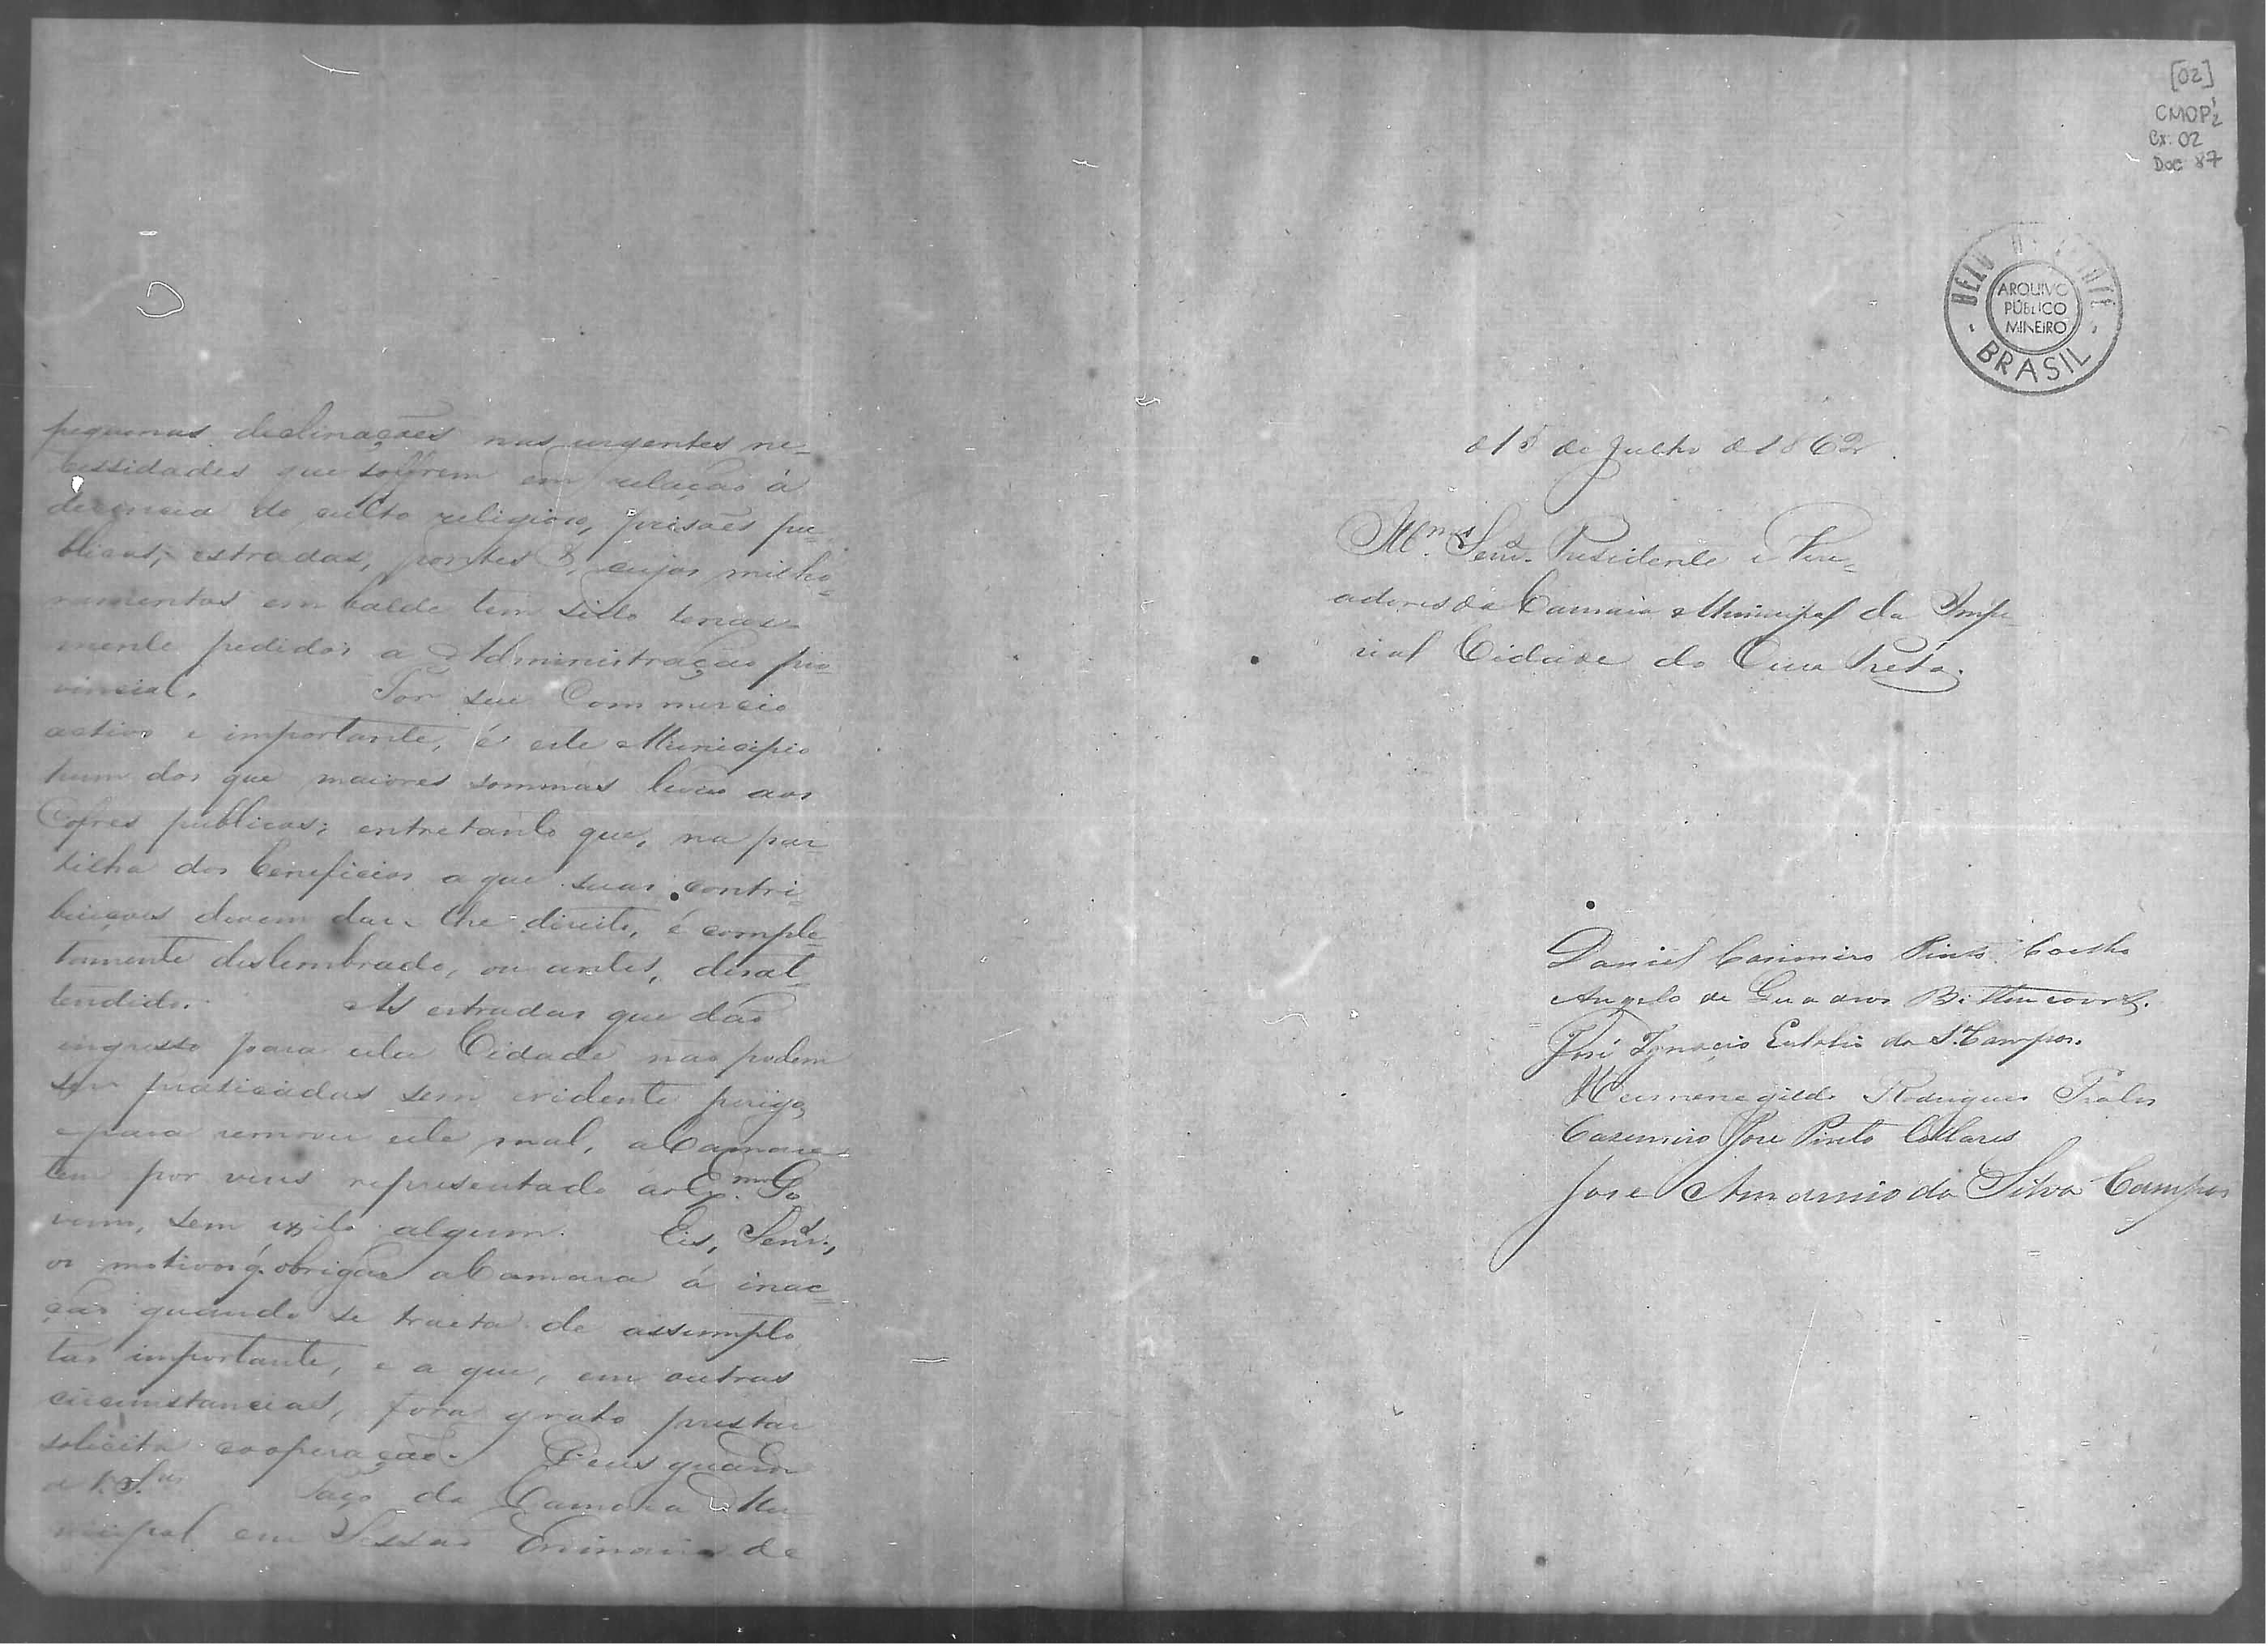 pequenas declinações nas urgentes ne=
cessidades que soffrem em relação á
decencia do culto religioso, prisões pu=
blicas, estradas, pontes &, cujos milho=
ramentos em balde tem sido tenas=
mente pedidos a Administração pro=
vincial. Por seu Commercio
activo e importante, é este Municipio
hum dos que maiores sommas levão aos
Cofres publicos; entretanto que, na par=
tilha dos beneficios a que suas contri=
buições devem dar-lhe direito, é comple=
tamente deslembrado, ou antes, desat=
tendido. As estradas que dão
ingresso para esta Cidade não podem
ser praticadas sem evidente perigo,
e para remover este mal, a Camara
tem por vezes representado ao Ex.mo Go
verno, sem exito algum. Eis, Senr.s,
os motivos q. obrigão a Camara á inac=
ção quando se tracta de assumpto
tão importante, e a que, em outras
circumstancias, fora grato prestar
solicita cooperação. Deus guar
de V. S.as Paço da Camara Mu
nicipal em Sessão Ordinaria de
[02]
CMOP 1/2
Cx. 02
Doc 87
BELO HORIZONTE
ARQUIVO
PÚBLICO
MINEIRO
BRASIL
15 de Julho de 1862.
Senr.s Presidente e Vere=
adores da Camara Municipal da Impe
rial Cidade do Ouro Preto.
Daniel Casimiro Pinto Coelho
Angelo de Quadros Bittencourt.
José Ignacio Eutalio da S.a Campos.
Hermenegildo Rodrigues Prates
Casimiro José Pinto Collares
José Amancio da Silva Campos